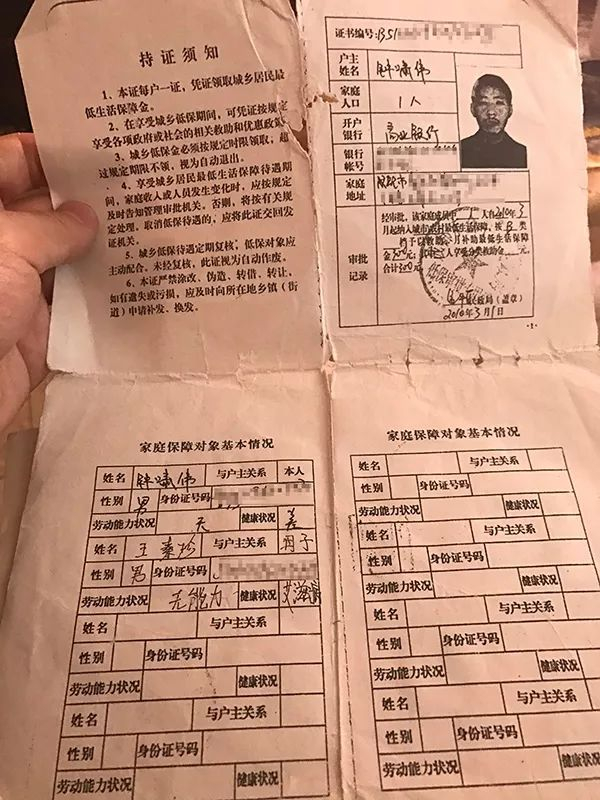 持证须知
1、本证每户一证，凭证领取城乡居民最
低生活保障金。
2、在享受城乡低保期间，可凭证按规定
享受各项政府或社会的相关救助和优惠政策
3、城乡低保金必须按规定时限领取，超
过规定期限不领，视为自动退出。
4、享受城乡居民最低生活保障待遇期
间，家庭收入或人员发生变化时，应按规定
及时告知管理审批机关。否则，将按有关规
定处理。取消低保待遇的，应将此证交回发
证机关。
5、城乡低保待遇定期复核，低保对象应
主动配合。未经复核，此证视为自动作废。
6、本证严禁涂改、伪造、转借、转让，
如有遗失或污损，应及时向所在地乡镇（街
道）申请补发、换发。
证书编号：B51
户主
姓名
家庭
人口 1人
开户
银行 商业银行
银行
帐号
家庭
地址
审批
记录
经审批，该家庭成员中1人自2010年3
月起纳入城市或村最低生活保障，按B类
2010年3月1日
家庭保障对象基本情况
姓名 与户主关系 本人
性别 男 身份证号码
劳动能力状况 无 健康状况 差
姓名 与户主关系
性别 男 身份证号码
劳动能力状况 无能力 健康状况 艾滋病
姓名 与户主关系
性别 身份证号码
劳动能力状况 健康状况
姓名 与户主关系
性别 身份证号码
劳动能力状况 健康状况
家庭保障对象基本情况
姓名 与户主关系
性别 身份证号码
劳动能力状况 健康状况
姓名 与户主关系
性别 身份证号码
劳动能力状况 健康状况
姓名 与户主关系
性别 身份证号码
劳动能力状况 健康状况
姓名 与户主关系
性别 身份证号码
劳动能力状况 健康状况